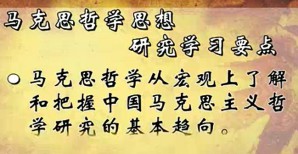 马克思哲学思想
研究学习要点
●马克思哲学从宏观上了解
和把握中国马克思主义哲
学研究的基本趋向。